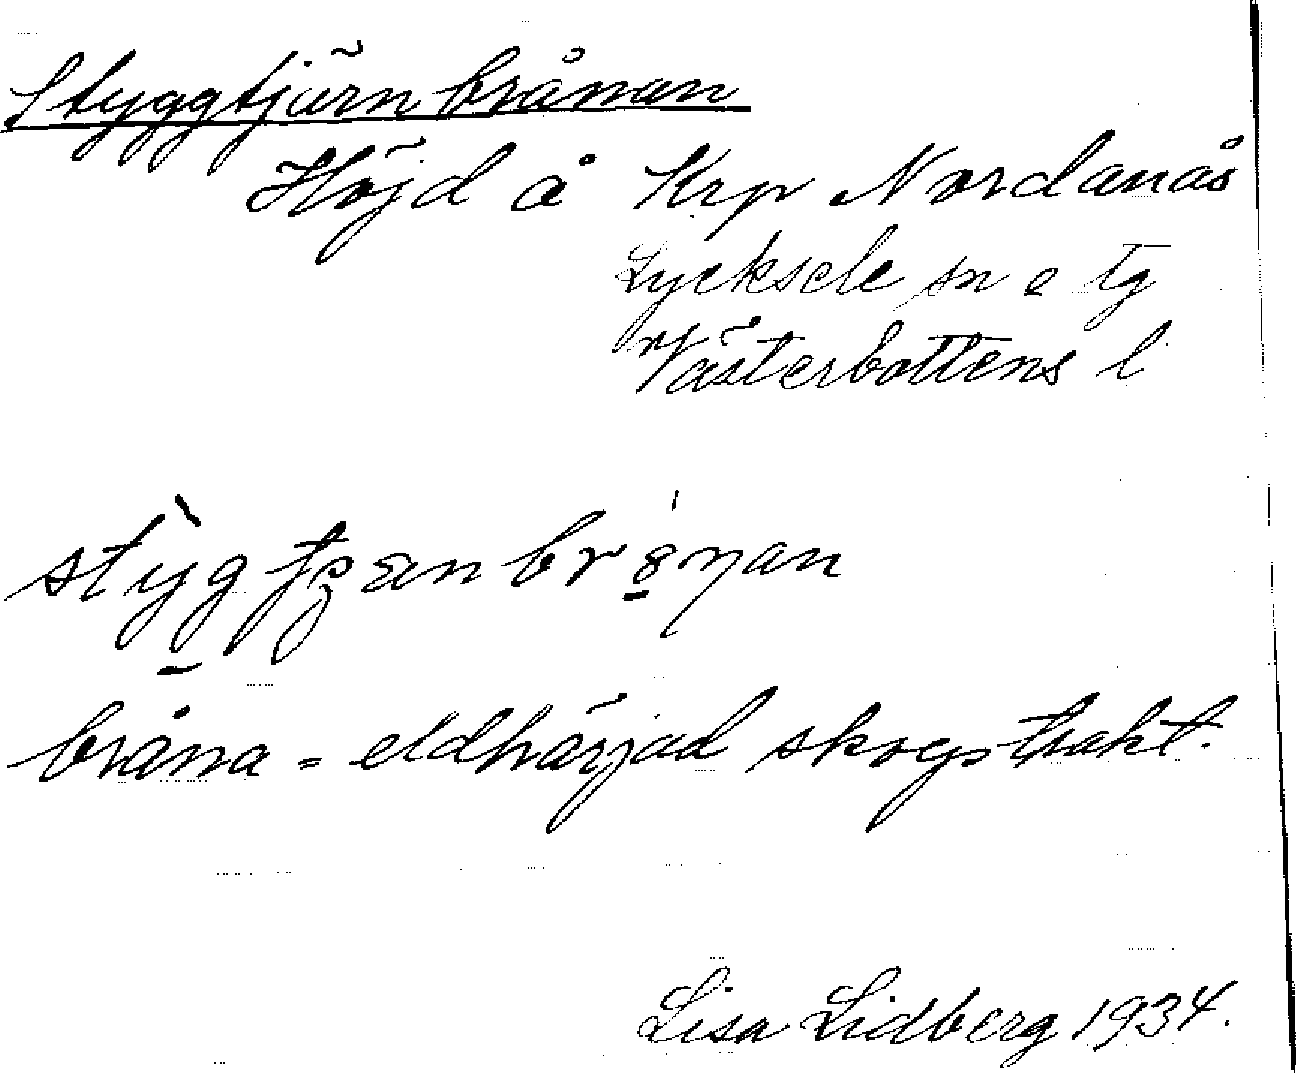 Styggtjärnbrånan
Höjd å Krp Nordanås
Lycksele sn o tg
Västerbottens l
bråna = eldhärjad skogstrakt.
Lisa Lidberg 1934.